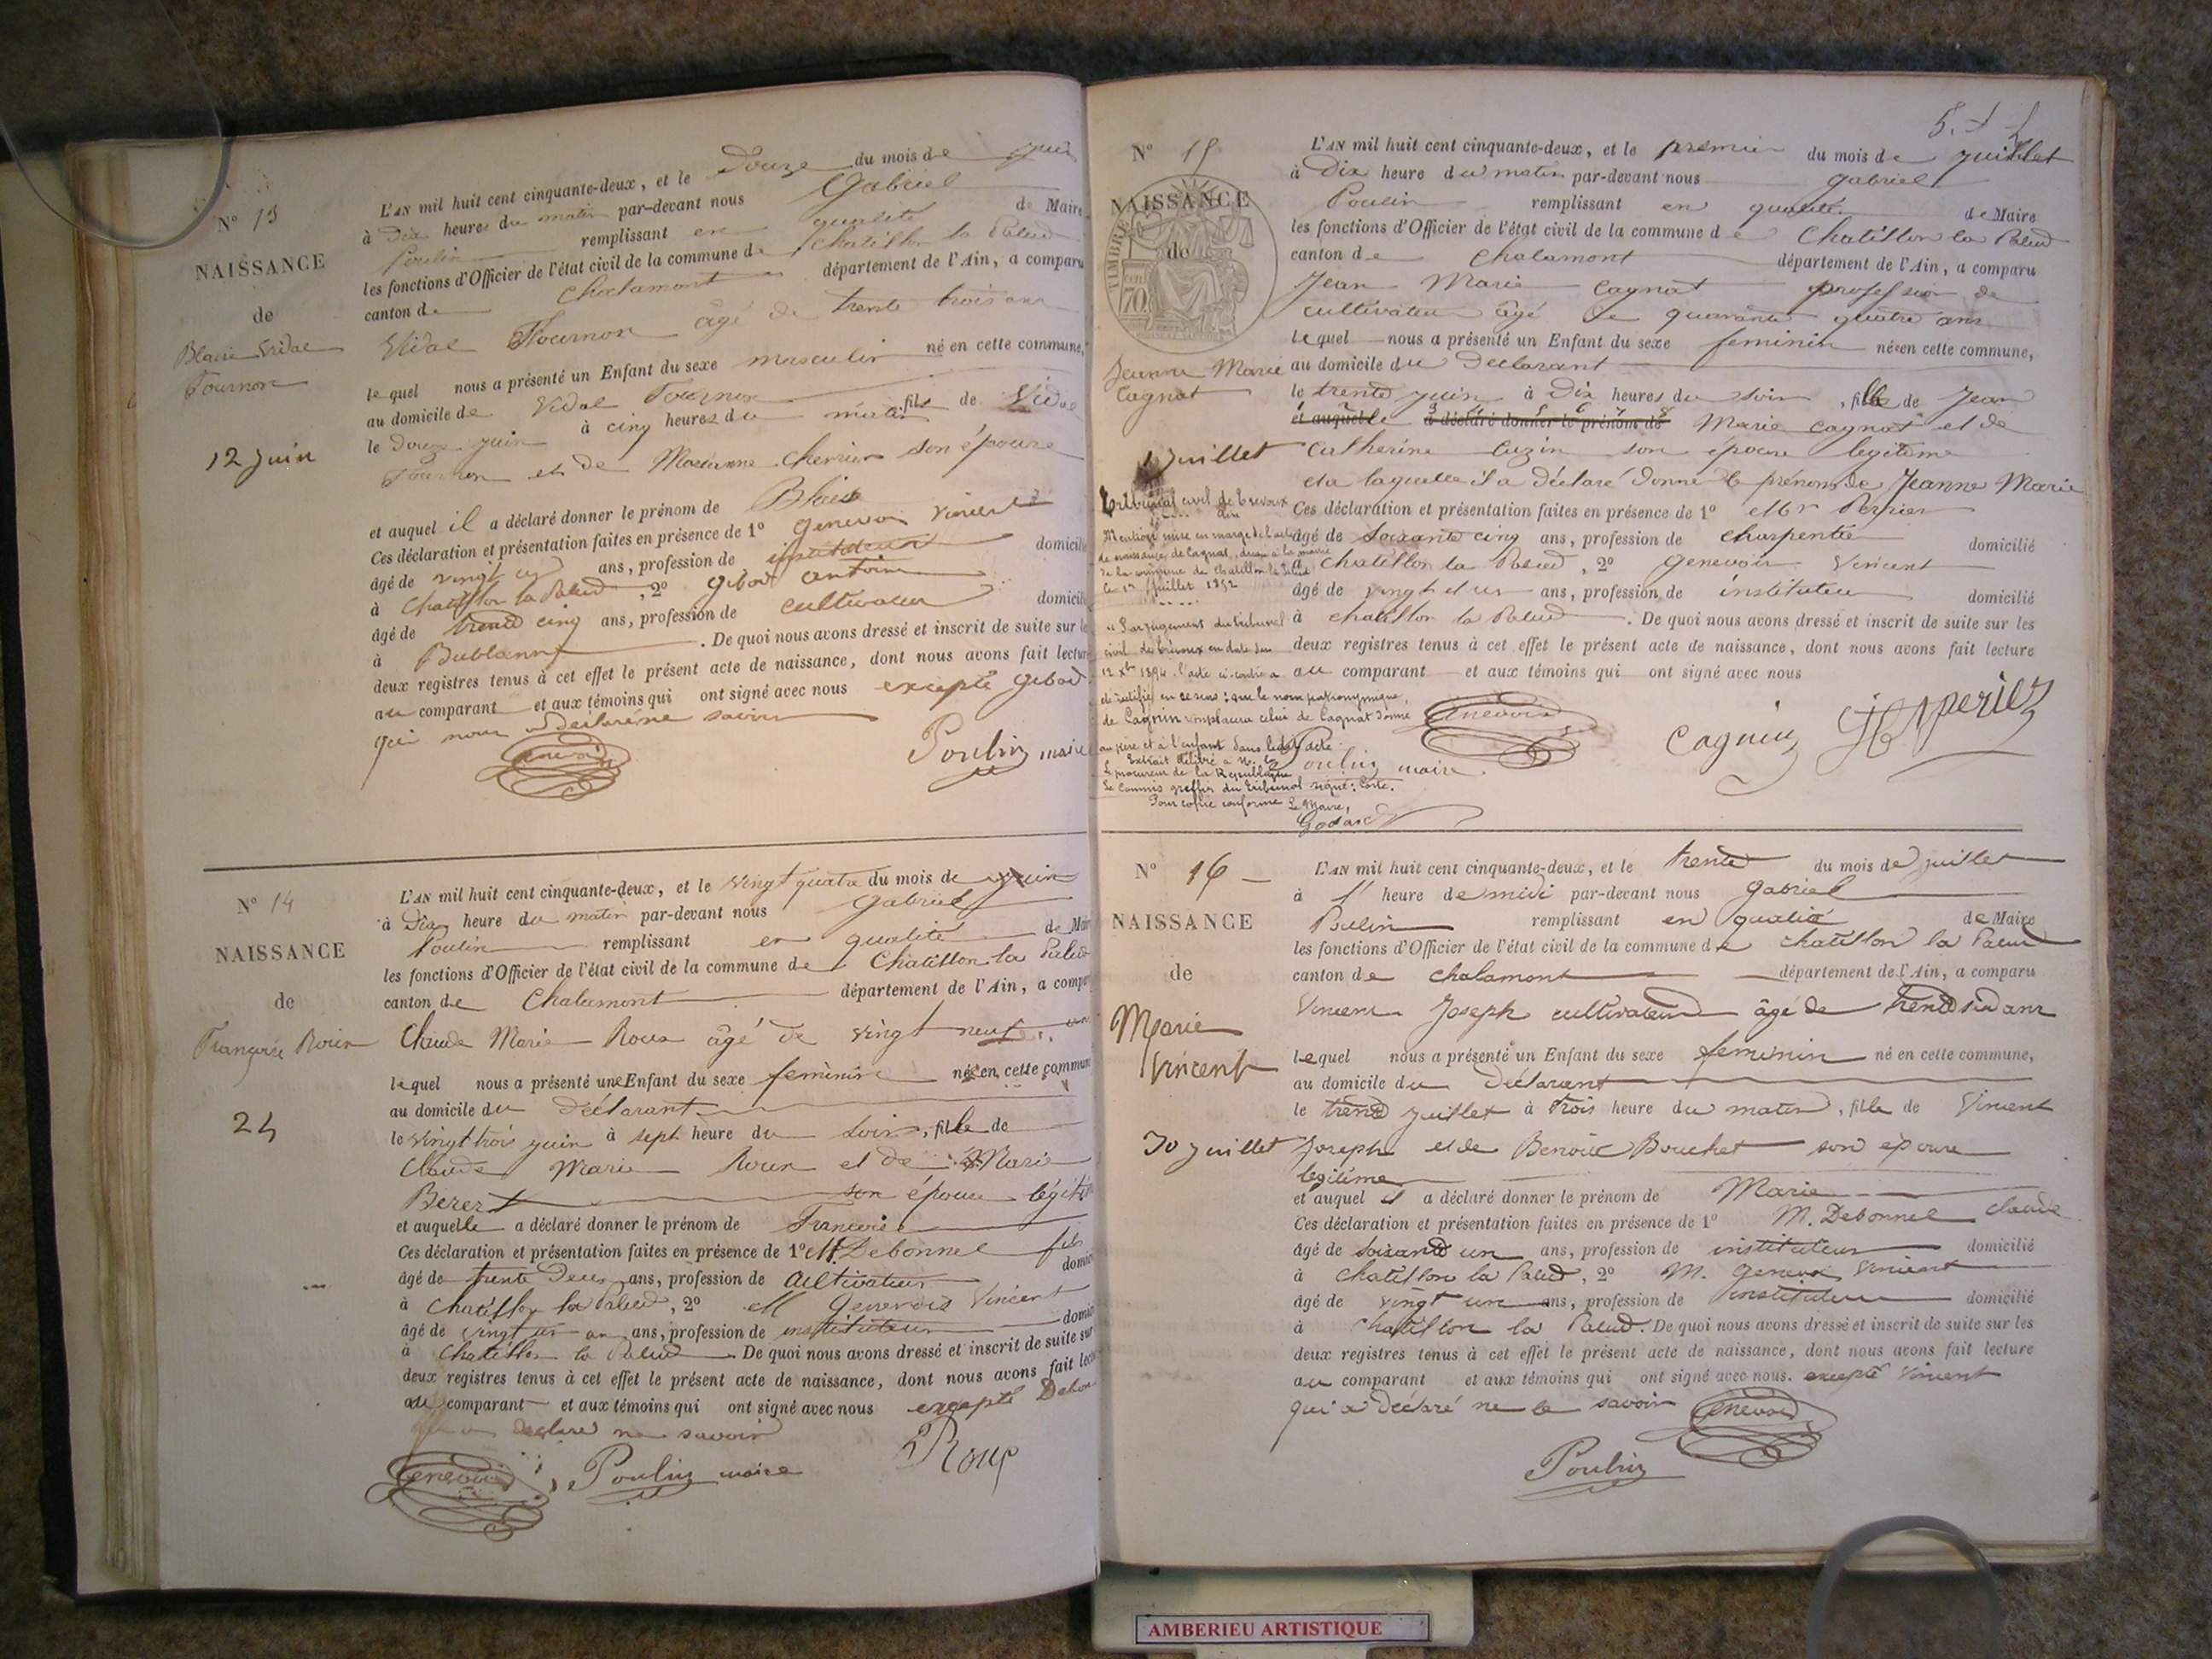 N° 13
NAISSANCE
de
Blaise Vidal
Tournon
12 juin
L'AN mil huit cent cinquante-deux, et le Douze du mois de juin
à Dix heures du matin par-devant nous Gabriel
Poulin remplissant en qualité de Maire
les fonctions d'Officier de l'état civil de la commune de Chatillon la Palud
canton de Chalamont département de l'Ain, a comparu
Vidal Tournon âgé de trente trois ans
lequel nous a présenté un Enfant du sexe masculin né en cette commune,
au domicile de Vidal Tournon
le Douze juin à cinq heures du matin fils de Vidal
Tournon et de Marianne Cherrier son épouse
et auquel il a déclaré donner le prénom de Blaise
Ces déclaration et présentation faites en présence de 1° Genevois Vincent
âgé de vingt un ans, profession de instituteur domicilié
à Chatillon la Palud, 2° Gibod antoine
âgé de trente cinq ans, profession de cultivateur domicilié
à Bublanne. De quoi nous avons dressé et inscrit de suite sur les
deux registres tenus à cet effet le présent acte de naissance, dont nous avons fait lecture
au comparant et aux témoins qui ont signé avec nous excepté Gibod
qui nous a déclaré ne savoir
Genevois Poulin maire
N° 14
NAISSANCE
de
Françoise Roux
24
L'AN mil huit cent cinquante-deux, et le vingt quatre du mois de juin
à Dix heure du matin par-devant nous Gabriel
Poulin remplissant en qualité de Maire
les fonctions d'Officier de l'état civil de la commune de Chatillon la Palud
canton de Chalamont département de l'Ain, a comparu
Claude Marie Roux âgé de vingt neuf ans
lequel nous a présenté une Enfant du sexe féminin née en cette commune
au domicile du déclarant
le vingt trois juin à sept heure du soir, fille de
Claude Marie Roux et de Marie
son épouse légitime
et auquelle a déclaré donner le prénom de Françoise
Ces déclaration et présentation faites en présence de 1° M. Debonnel fils
âgé de trente Deux ans, profession de cultivateur domicilié
à Chatillon la Palud, 2° M Genevois Vincent
âgé de vingt un ans, profession de instituteur domicilié
à Chatillon la Palud De quoi nous avons dressé et inscrit de suite sur
deux registres tenus à cet effet le présent acte de naissance, dont nous avons fait lecture
au comparant et aux témoins qui ont signé avec nous excepté Debonnel
qui a déclaré ne savoir
Genevois Poulin maire Roux
N° 15
NAISSANCE
de
TIMBRE
70
Jeanne Marie
Cagnat
1 Juillet
L'AN mil huit cent cinquante-deux, et le premier du mois de juillet
à Dix heure du matin par-devant nous Gabriel
Poulin remplissant en qualité de Maire
les fonctions d'Officier de l'état civil de la commune de Chatillon la Palud
canton de Chalamont département de l'Ain, a comparu
Jean Marie Cagnat profession de
cultivateur âgé de quarante quatre ans
lequel nous a présenté un Enfant du sexe feminin née en cette commune,
au domicile du Déclarant
le trente juin à Dix heures du soir, fille de Jean
et auquelle a déclaré donner le prénom de Marie Cagnat et de
Catherine Cuzin son épouse légitime
et a laquelle il a déclaré donné le prénom de Jeanne Marie
Ces déclaration et présentation faites en présence de 1° Mr Perrier
âgé de soixante cinq ans, profession de charpentier domicilié
à Chatillon la Palud, 2° Genevois Vincent
âgé de vingt et un ans, profession de instituteur domicilié
à Chatillon la Palud. De quoi nous avons dressé et inscrit de suite sur les
deux registres tenus à cet effet le présent acte de naissance, dont nous avons fait lecture
au comparant et aux témoins qui ont signé avec nous
Genevois Cagnin Perier
Poulin maire
Tribunal civil de Trévoux
Ain
Mention mise en marge de l'acte
de naissance de Cagnat, dressé à la mairie
de la commune de Chatillon la Palud
le 1er juillet 1852
"Par jugement du tribunal
civil de Trévoux en date du
12 Xbre 1894 l'acte ci-contre a
été rectifié en ce sens : que le nom patronymique
de Cagnin remplacera celui de Cagnat donné
au père et à l'enfant dans ledit acte.
Extrait délivré à M. le
procureur de la République
Le Commis greffier du Tribunal signé:
Pour copie conforme Le Maire,
Godard
N° 16
NAISSANCE
de
Marie
Vincent
30 Juillet
L'AN mil huit cent cinquante-deux, et le trente du mois de juillet
à heure de midi par-devant nous Gabriel
Poulin remplissant en qualité de Maire
les fonctions d'Officier de l'état civil de la commune de Chatillon la Palud
canton de Chalamont département de l'Ain, a comparu
Vincent Joseph cultivateur âgé de trente six ans
lequel nous a présenté un Enfant du sexe feminin né en cette commune,
au domicile du Déclarant
le trente juillet à trois heure du matin, fille de Vincent
Joseph et de Benoite Bouchet son épouse
légitime
et auquel il a déclaré donner le prénom de Marie
Ces déclaration et présentation faites en présence de 1° M. Debonnel Claude
âgé de soixante un ans, profession de instituteur domicilié
à Chatillon la Palud, 2° M. Genevois Vincent
âgé de vingt un ans, profession de instituteur domicilié
à Chatillon la Palud. De quoi nous avons dressé et inscrit de suite sur les
deux registres tenus à cet effet le présent acte de naissance, dont nous avons fait lecture
au comparant et aux témoins qui ont signé avec nous. excepté Vincent
qui a déclaré ne le savoir Genevois
Poulin
AMBERIEU ARTISTIQUE